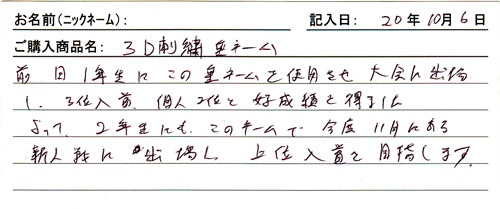 お名前(ニックネーム): 記入日: 20年10月6日
ご購入商品名: 3D刺繍 ネーム
前回1年生にこの ネームを使用させ 大会に出場
し、3位入賞、個人2位と好成績を得ました
よって、2年生にも、このネームで 今度11月にある
新人戦に出場し、上位入賞を目指します。